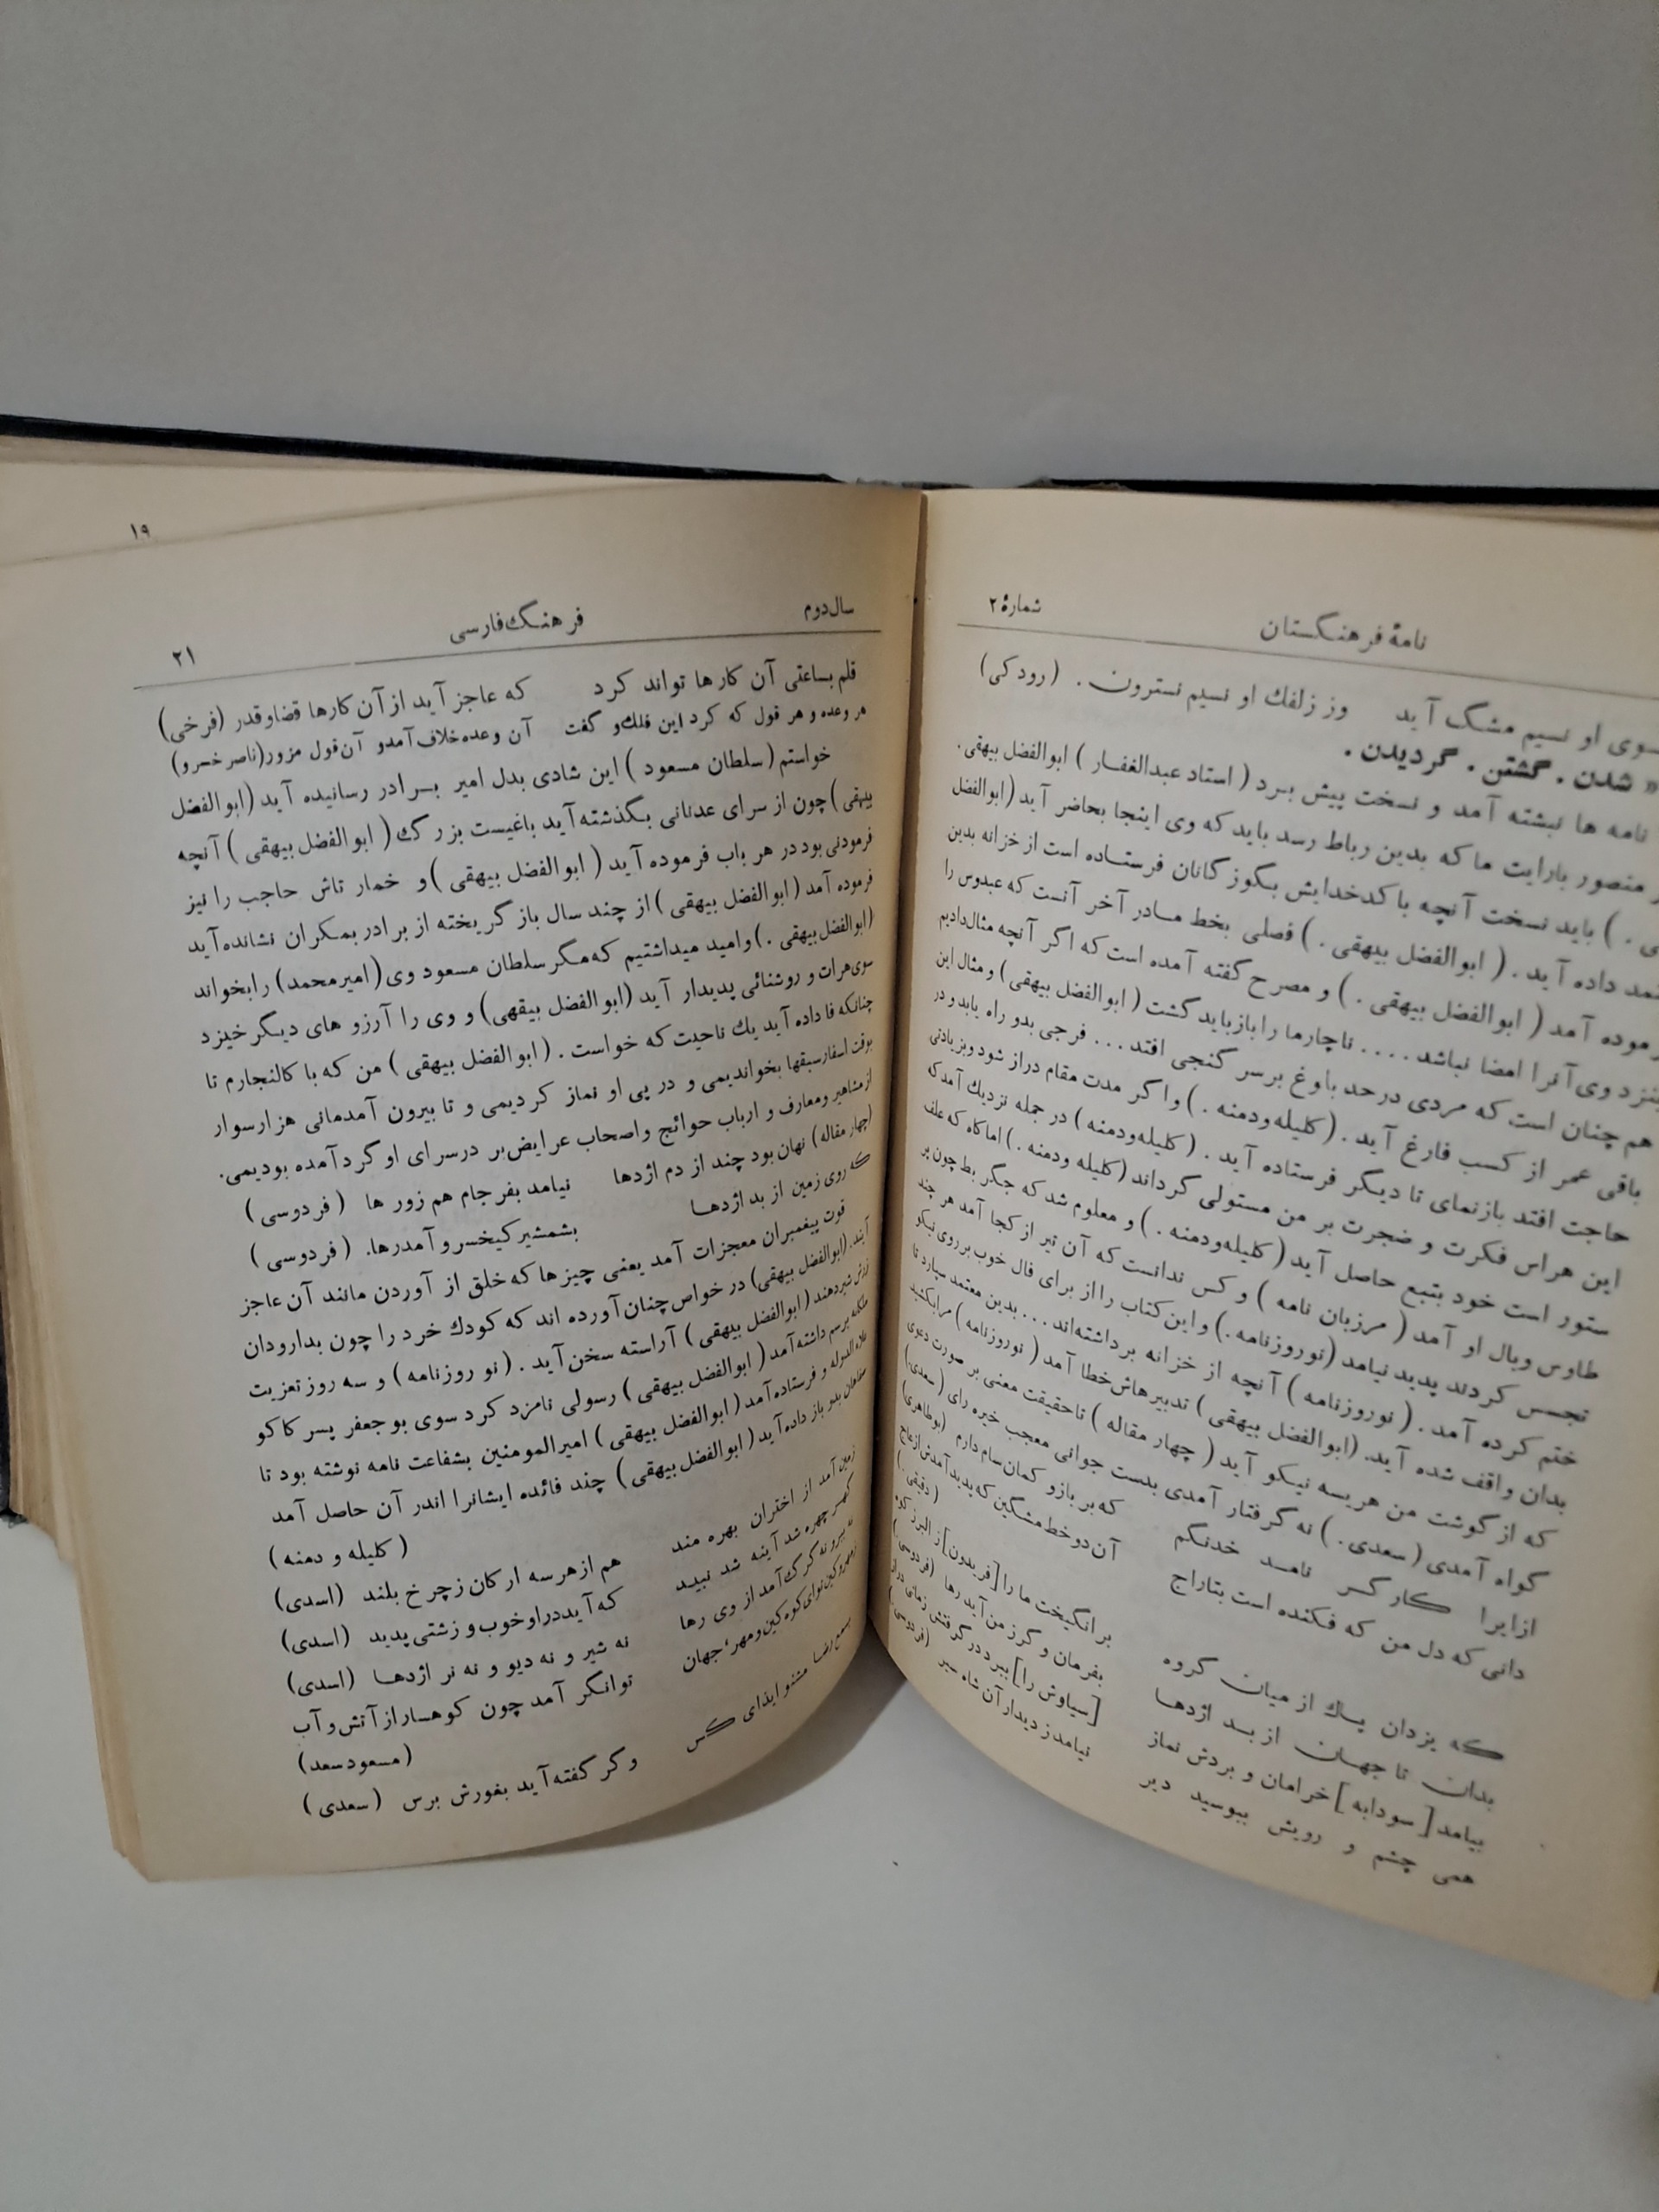 نامهٔ فرهنگستان شمارهٔ ۲
سوی او نسیم مشک آید وز زلفك او نسیم نسترون . (رودکی)
« شدن . گشتن . گردیدن .
نامه ها نبشته آمد و نسخت پیش برد ( استاد عبدالغفار ) ابوالفضل بیهقی .
منصور بارایت ما که بدین رباط رسد باید که وی اینجا بحاضر آید (ابوالفضل
. ) باید نسخت آنچه با کدخدایش بگوزگانان فرستاده است از خزانه بدین
داده آید . ( ابوالفضل بیهقی . ) فصلی بخط مادر آخر آنست که عبدوس را
آمد ( ابوالفضل بیهقی . ) و مصرح گفته آمده است که اگر آنچه مثال دادیم
وی آنرا امضا نباشد .... ناچار ما را باز باید گشت ( ابوالفضل بیهقی ) و مثال این
هم چنان است که مردی در حد باوغ بر سر گنجی افتد ... فرجی بدو راه یابد و در
باقی عمر از کسب فارغ آید . (کلیله ودمنه . ) واگر مدت مقام دراز شود و بزیادتی
حاجت افتد بازنمای تا دیگر فرستاده آید . ( کلیله ودمنه ) در جمله نزدیك آمد که
این هراس فکرت و ضجرت بر من مستولی گرداند (کلیله ودمنه . ) اما کاه که علف
ستور است خود بتبع حاصل آید ( کلیله ودمنه . ) و معلوم شد که جگر بط چون پر
طاوس وبال او آمد ( مرزبان نامه ) و کس ندانست که آن تیر از کجا آمد هر چند
تجسس کردند پدید نیامد (نوروزنامه .) و این کتاب را از برای فال خوب بر روی نیکو
ختم کرده آمد . ( نوروزنامه ) آنچه از خزانه برداشته‌اند ... بدین معتمد سپارد تا
بدان واقف شده آید. (ابوالفضل بیهقی ) تدبیرهاش خطا آمد ( نوروزنامه ) مرا بکشید
که از گوشت من هریسه نیکو آید ( چهار مقاله ) تا حقیقت معنی بر صورت دعوی
گواه آمدی ( سعدی . ) نه گرفتار آمدی بدست جوانی معجب خیره رای ( سعدی.)
ازایرا کارگر نامد خدنگم که بر بازو کمان سام دارم (بوطاهری)
دانی که دل من که فکنده است بتاراج آن دو خط مشگین که پدید آمدش از عاج
( دقیقی . )
که یزدان پاك از میان گروه برانگیخت ما را [فریدون] ز البرز کوه
بدان تا جهان از بد اژدها بفرمان و گرز من آید رها (فردوسی.)
بیامد [ سودابه ] خرامان و بردش نماز [ سیاوش را ] ببر در گرفتش زمانی دراز
همی چشم و رویش ببوسید دیر نیامد ز دیدار آن شاه سیر (فردوسی)
۱۹
سال دوم فرهنگ فارسی ۲۱
قلم بساعتی آن کارها تواند کرد که عاجز آید از آن کارها قضاو قدر (فرخی)
هر وعده و هر قول که کرد این فلك و گفت آن وعده خلاف آمدو آن قول مزور(ناصر خسرو)
خواستم ( سلطان مسعود ) این شادی بدل امیر برادر رسانیده آید (ابوالفضل
بیهقی ) چون از سرای عدنانی بگذشته آید باغیست بزرگ ( ابوالفضل بیهقی ) آنچه
فرمودنی بود در هر باب فرموده آید ( ابوالفضل بیهقی ) و خمار تاش حاجب را نیز
فرموده آمد ( ابوالفضل بیهقی ) از چند سال باز گریخته از برادر بمکران نشانده آید
(ابوالفضل بیهقی .) وامید میداشتیم که مگر سلطان مسعود وی (امیرمحمد) را بخواند
سوی هرات و روشنائی پدیدار آید (ابوالفضل بیقهی) و وی را آرزو های دیگر خیزد
چنانکه فا داده آید یك ناحیت که خواست . ( ابوالفضل بیهقی ) من که با کالنجارم تا
بوقت اسفار سبقها بخواندیمی و در پی او نماز کردیمی و تا بیرون آمدمانی هزار سوار
از مشاهیر ومعارف و ارباب حوائج واصحاب عرایض بر در سرای او گرد آمده بودیمی.
(چهار مقاله) نهان بود چند از دم اژدها نیامد بفرجام هم زور ها ( فردوسی )
که روی زمین از بد اژدها بشمشیر کیخسرو آمد رها. ( فردوسی )
قوت پیغمبران معجزات آمد یعنی چیزها که خلق از آوردن مانند آن عاجز
آیند. (ابوالفضل بیهقی) در خواص چنان آورده اند که کودك خرد را چون بدارودان
زرین شیر دهند ( ابوالفضل بیهقی ) آراسته سخن آید . ( نو روزنامه ) و سه روز تعزیت
ملکانه برسم داشته آمد ( ابوالفضل بیهقی ) رسولی نامزد کرد سوی بو جعفر پسر کاکو
علاءالدوله و فرستاده آمد ( ابوالفضل بیهقی ) امیرالمومنین بشفاعت نامه نوشته بود تا
سپاهان بدو باز داده آید ( ابوالفضل بیهقی ) چند فائده ایشانرا اندر آن حاصل آمد
( کلیله و دمنه )
زمین آمد از اختران بهره مند هم از هر سه ارکان ز چرخ بلند (اسدی)
گهر چهره شد آینه شد نبید که آید در او خوب و زشتی پدید (اسدی)
نه ببر و نه گرگ آمد از وی رها نه شیر و نه دیو و نه نر اژدها (اسدی)
ز مهر و کین نوای کوه کین و مهر ، جهان توانگر آمد چون کوهسار از آتش و آب
( مسعود سعد )
بسمع رضا مشنو ایذای کس و گر گفته آید بغورش برس ( سعدی )